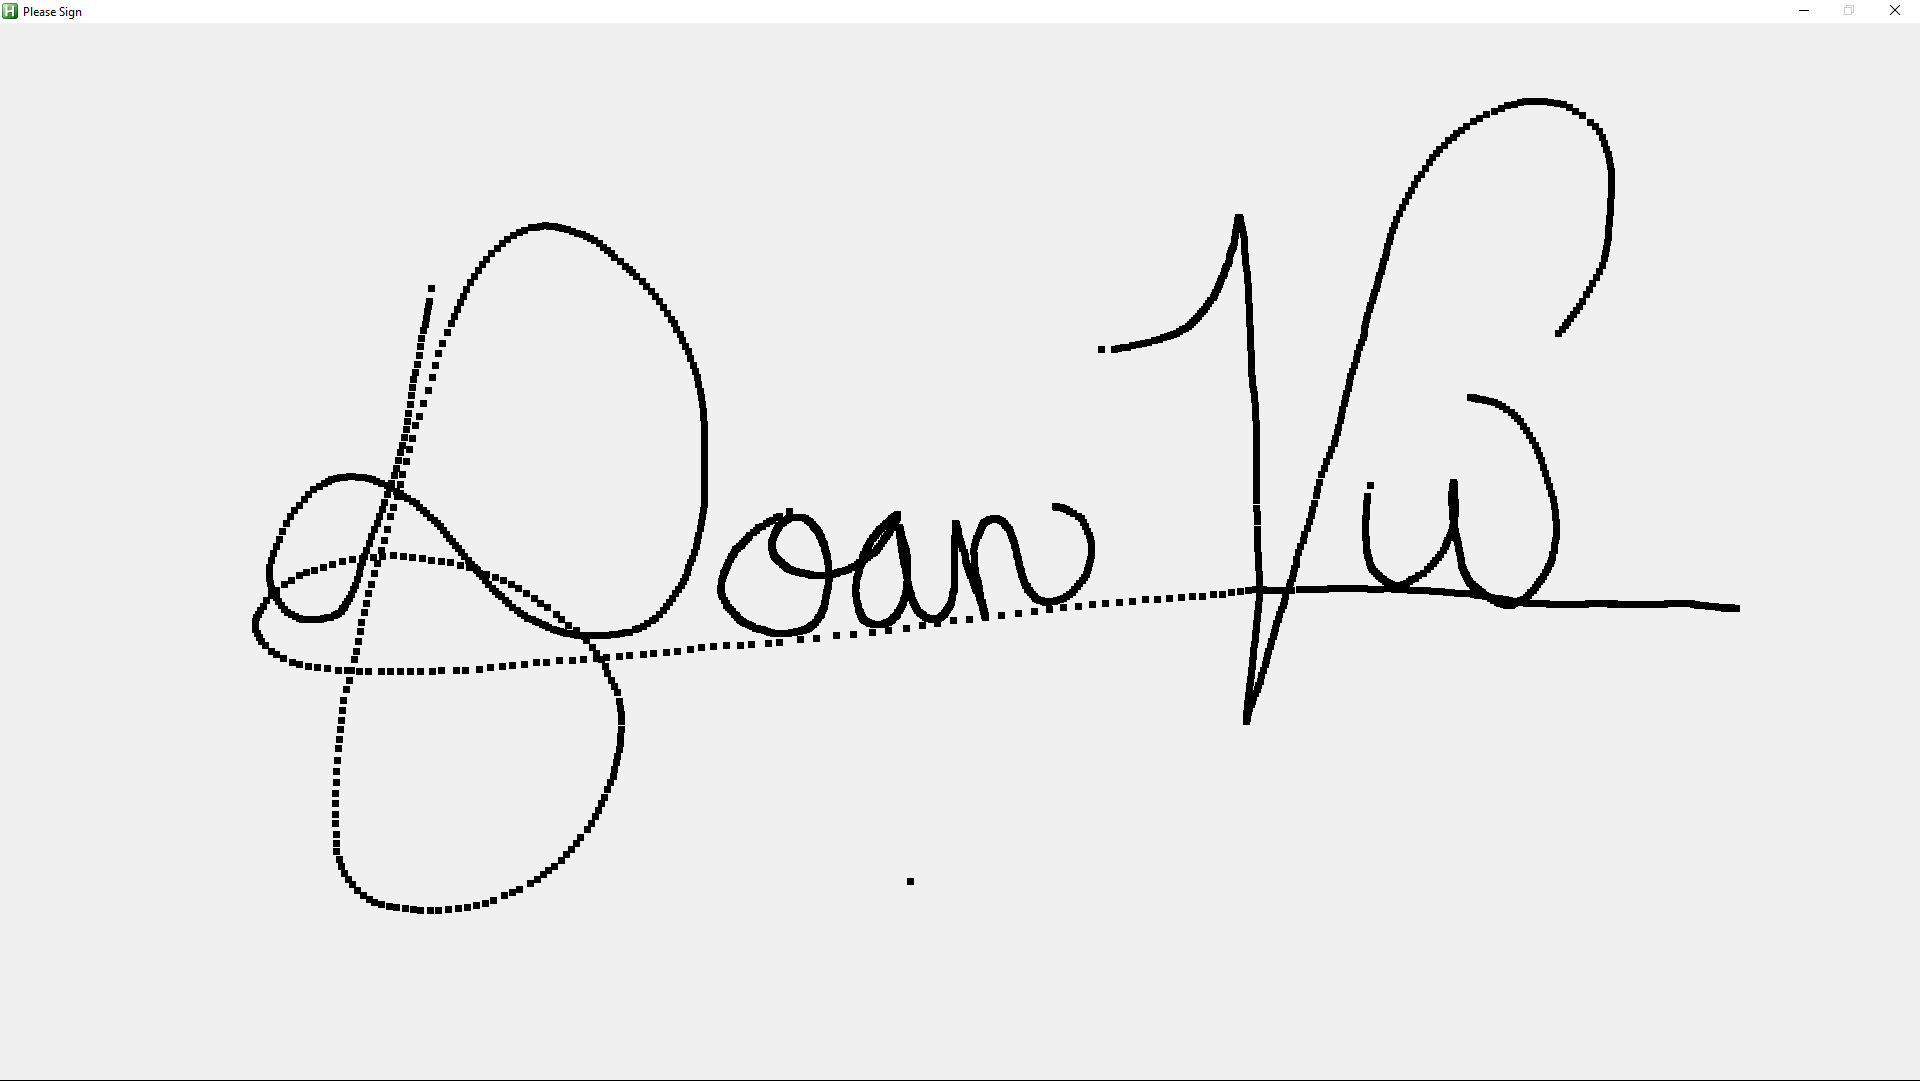 Please Sign
Doan Vu